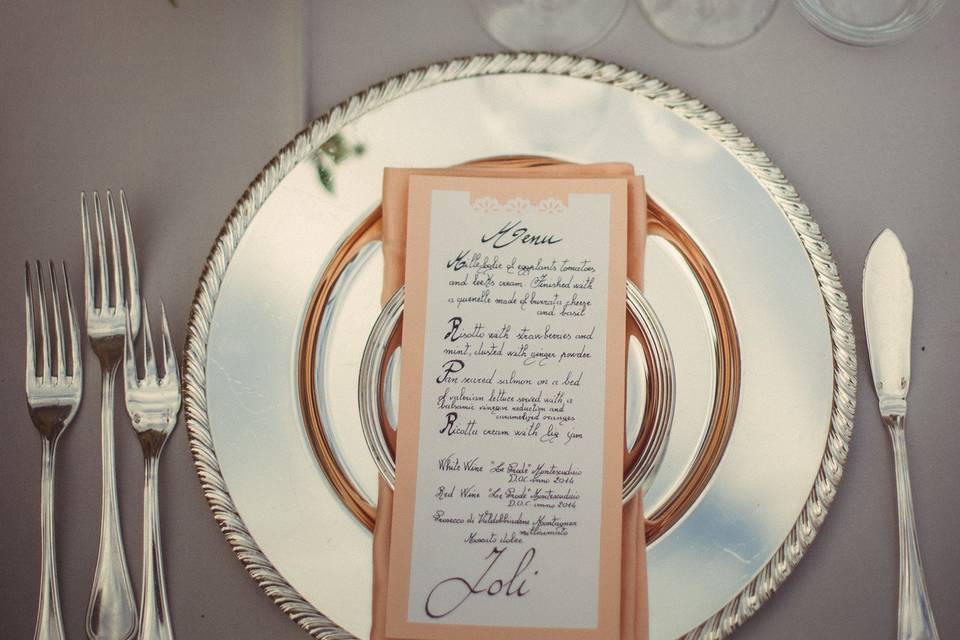 Menu
Millefoglie of eggplants tomatoes
and leeks cream. Finished with
a quenelle made of burrata cheese
and basil
Risotto with strawberries and
mint, dusted with ginger powder
Pan seared salmon on a bed
of valerian lettuce served with a
balsamic vinegar reduction and
caramelized oranges
Ricotta cream with fig jam
White Wine "Le Prode" Montescudaio
D.O.C. anno 2014
Red Wine "Le Prode" Montescudaio
D.O.C. anno 2014
Prosecco di Valdobbiadene Montagner
millesimato
Moscato dolce
Joli